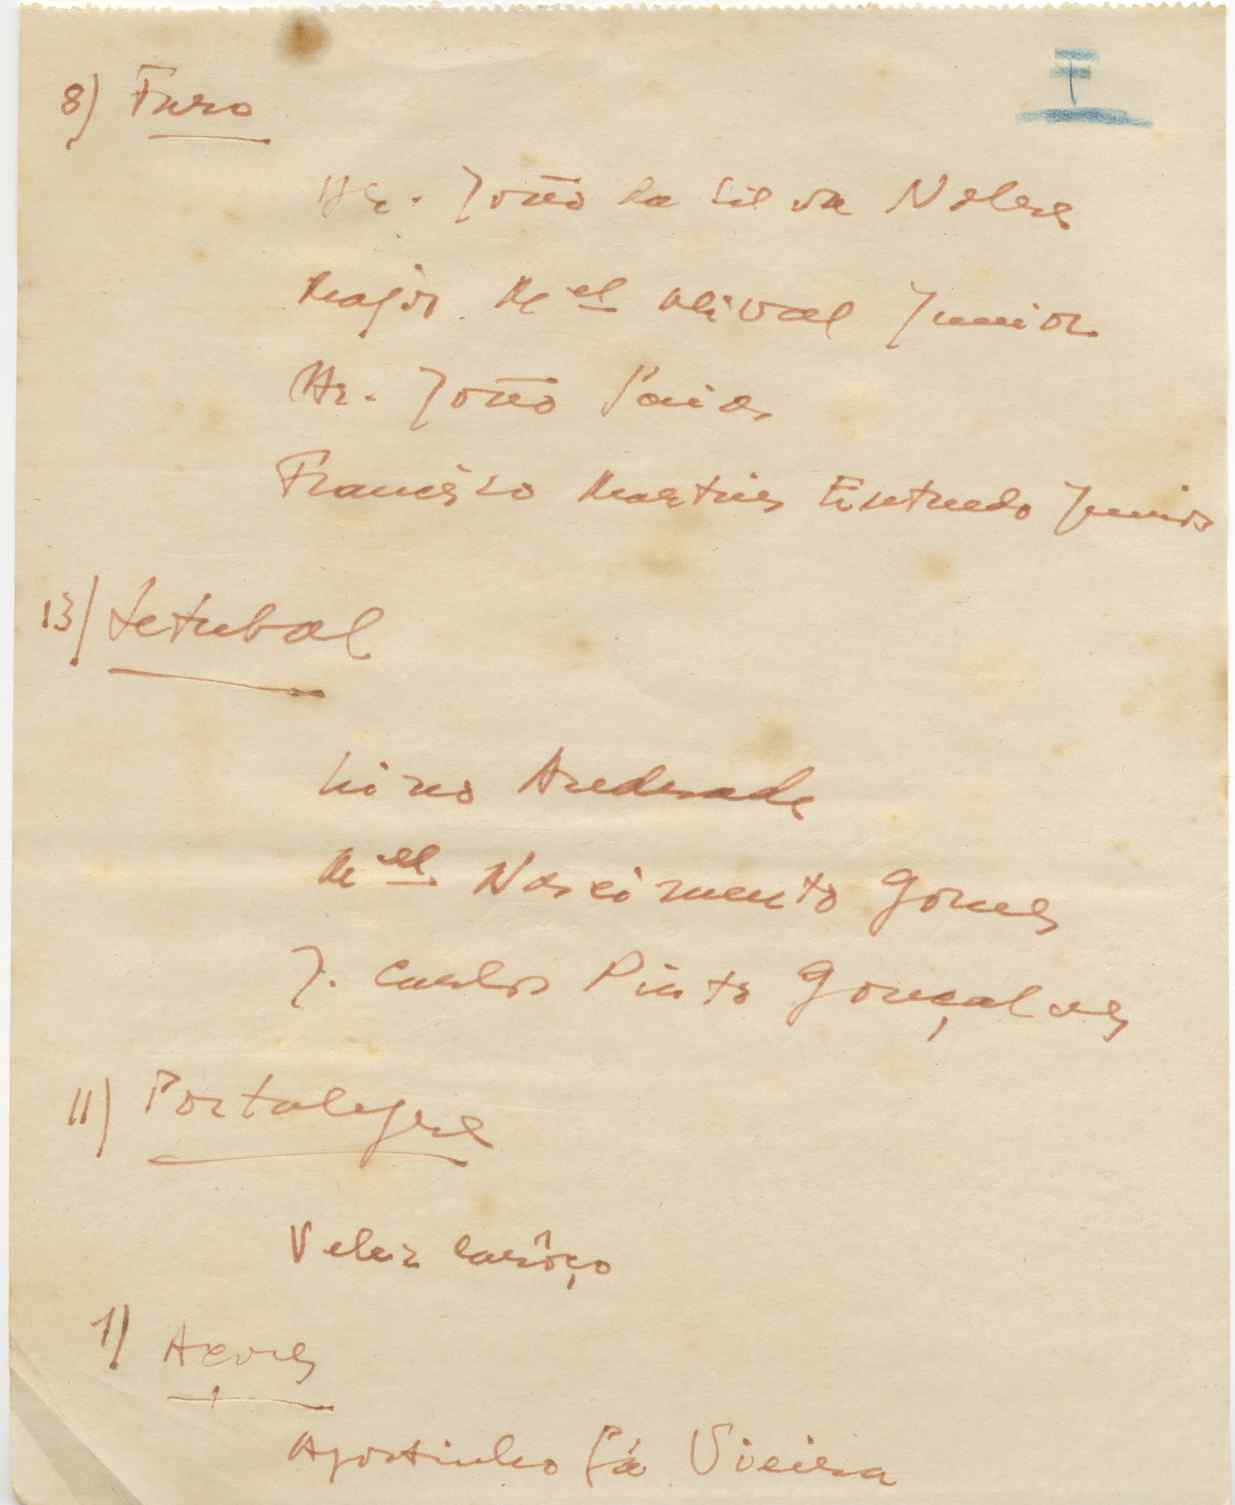 I
8) Faro
Dr. João da Silva Nobre
Major M.el Olival Junior
Dr. João Pais
Francisco Martins Entrudo Junior
13) Setubal
Lino Andrade
M.el Nascimento Gomes
J. Carlos Pinto Gonçalves
11) Portalegre
Velez Carôço
1) Açores
Agostinho Sá Vieira